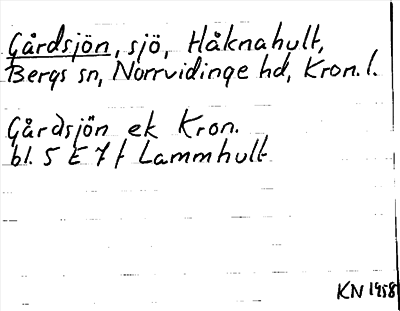 Gårdsjön, sjö, Håknahult,
Bergs sn, Norrvidinge hd, Kron. l.
Gårdsjön ek Kron.
bl. 5 E 7 f Lammhult
KN 1958